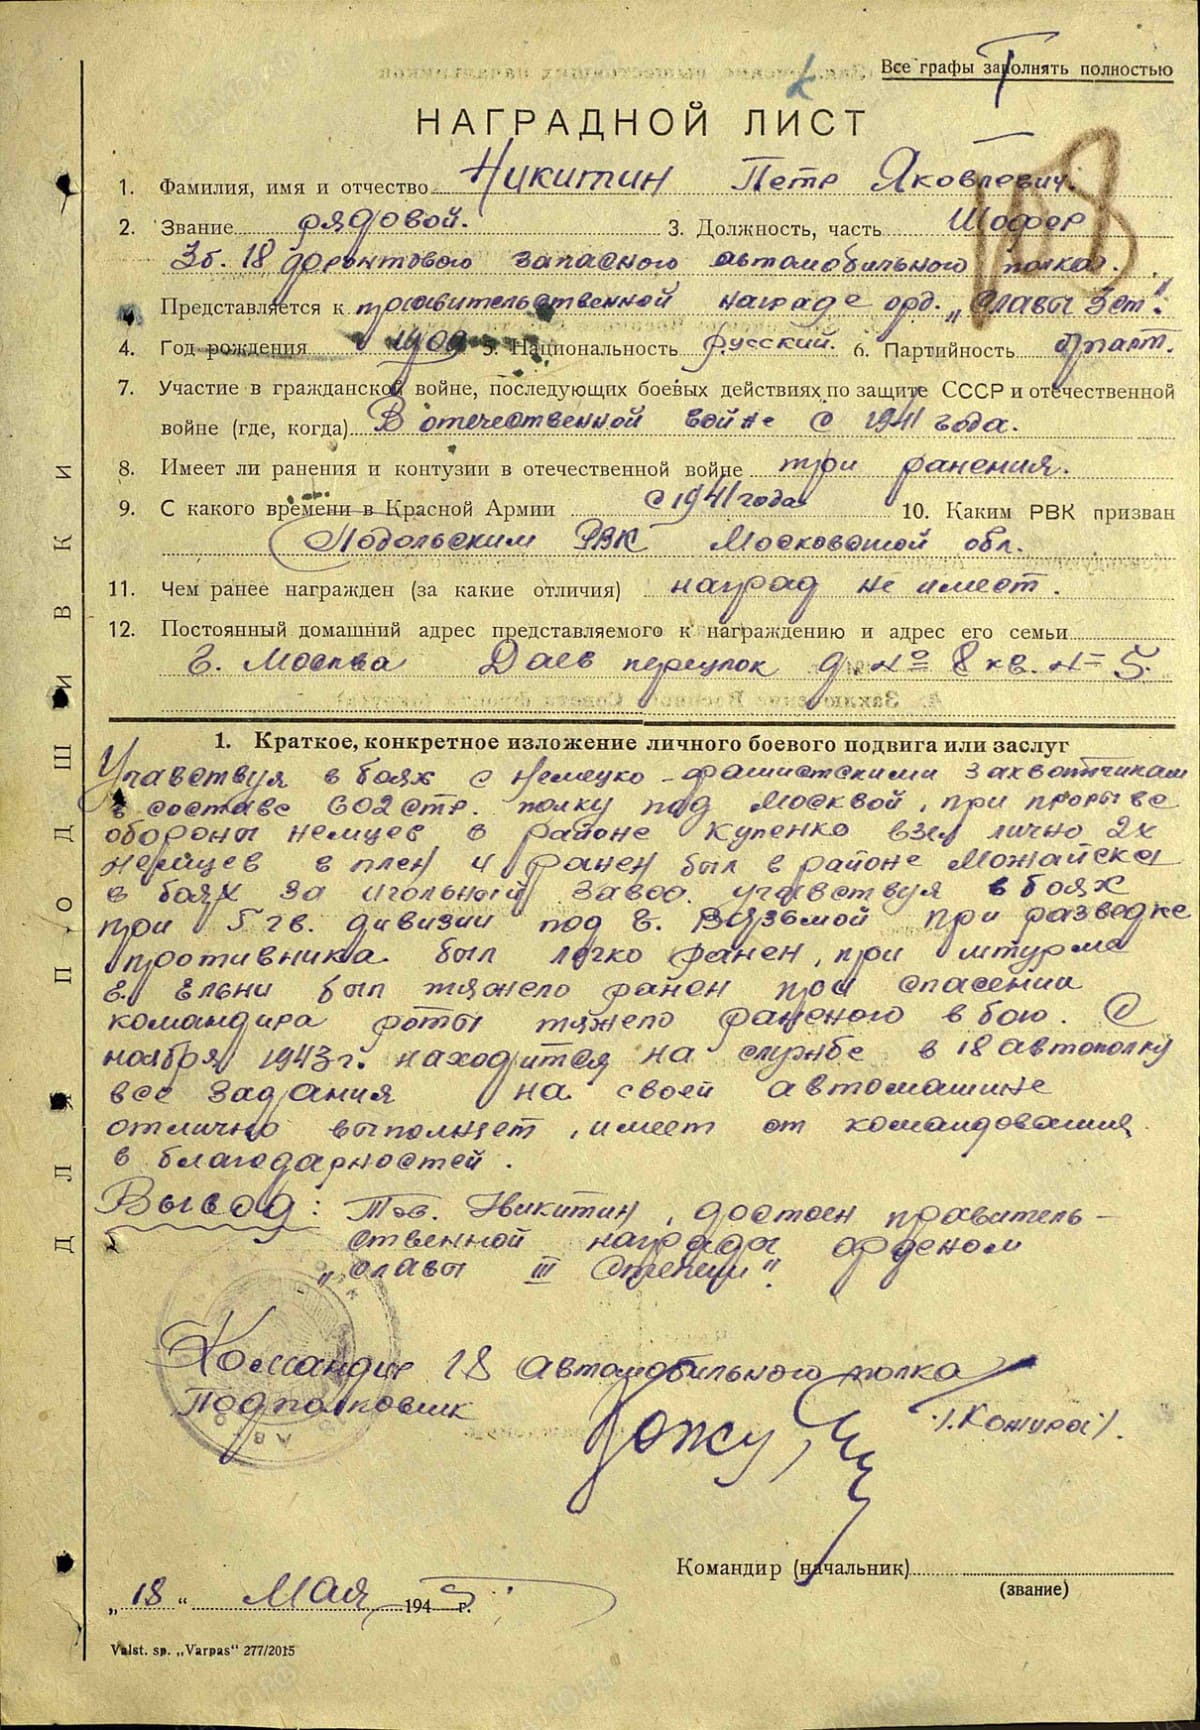 Все графы заполнять полностью
НАГРАДНОЙ ЛИСТ
1. Фамилия, имя и отчество Никитин Петр Яковлевич.
2. Звание рядовой. 3. Должность, часть Шофер
3б. 18 фронтового запасного автомобильного полка.
Представляется к правительственной награде орд. „Славы 3 ст".
4. Год рождения 1909 5. Национальность русский. 6. Партийность б/парт.
7. Участие в гражданской войне, последующих боевых действиях по защите СССР и отечественной
войне (где, когда) В отечественной войне с 1941 года.
8. Имеет ли ранения и контузии в отечественной войне три ранения.
9. С какого времени в Красной Армии с 1941 года 10. Каким РВК призван
Подольским РВК Московской обл.
11. Чем ранее награжден (за какие отличия) наград не имеет.
12. Постоянный домашний адрес представляемого к награждению и адрес его семьи
г. Москва Даев переулок д. № 8 кв. № 5.
1. Краткое, конкретное изложение личного боевого подвига или заслуг
Учавствуя в боях с немецко-фашистскими захватчикам
в составе 602 стр. полку под Москвой, при прорыве
обороны немцев в районе Купенко взял лично 2х
немцев в плен и ранен был в районе Можайска
в боях за игольный завод. учавствуя в боях
при 5 гв. дивизии под г. Вязьмой при разведке
противника был легко ранен, при штурме
г. Ельни был тяжело ранен при спасении
командира роты тяжело раненого в бою. С
ноября 1943 г. находится на службе в 18 автополку
все задания на своей автомашине
отлично выполняет, имеет от командования
в благодарностей.
Вывод: Тов. Никитин, достоен правитель-
ственной награды орденом
„Славы III степени".
Командир 18 автомобильного полка
Подполковник /Кожура/.
Командир (начальник)
(звание)
„18" Мая 1945 г.
Valst. sp. „Varpas" 277/2015
ДЛЯ ПОДШИВКИ
108